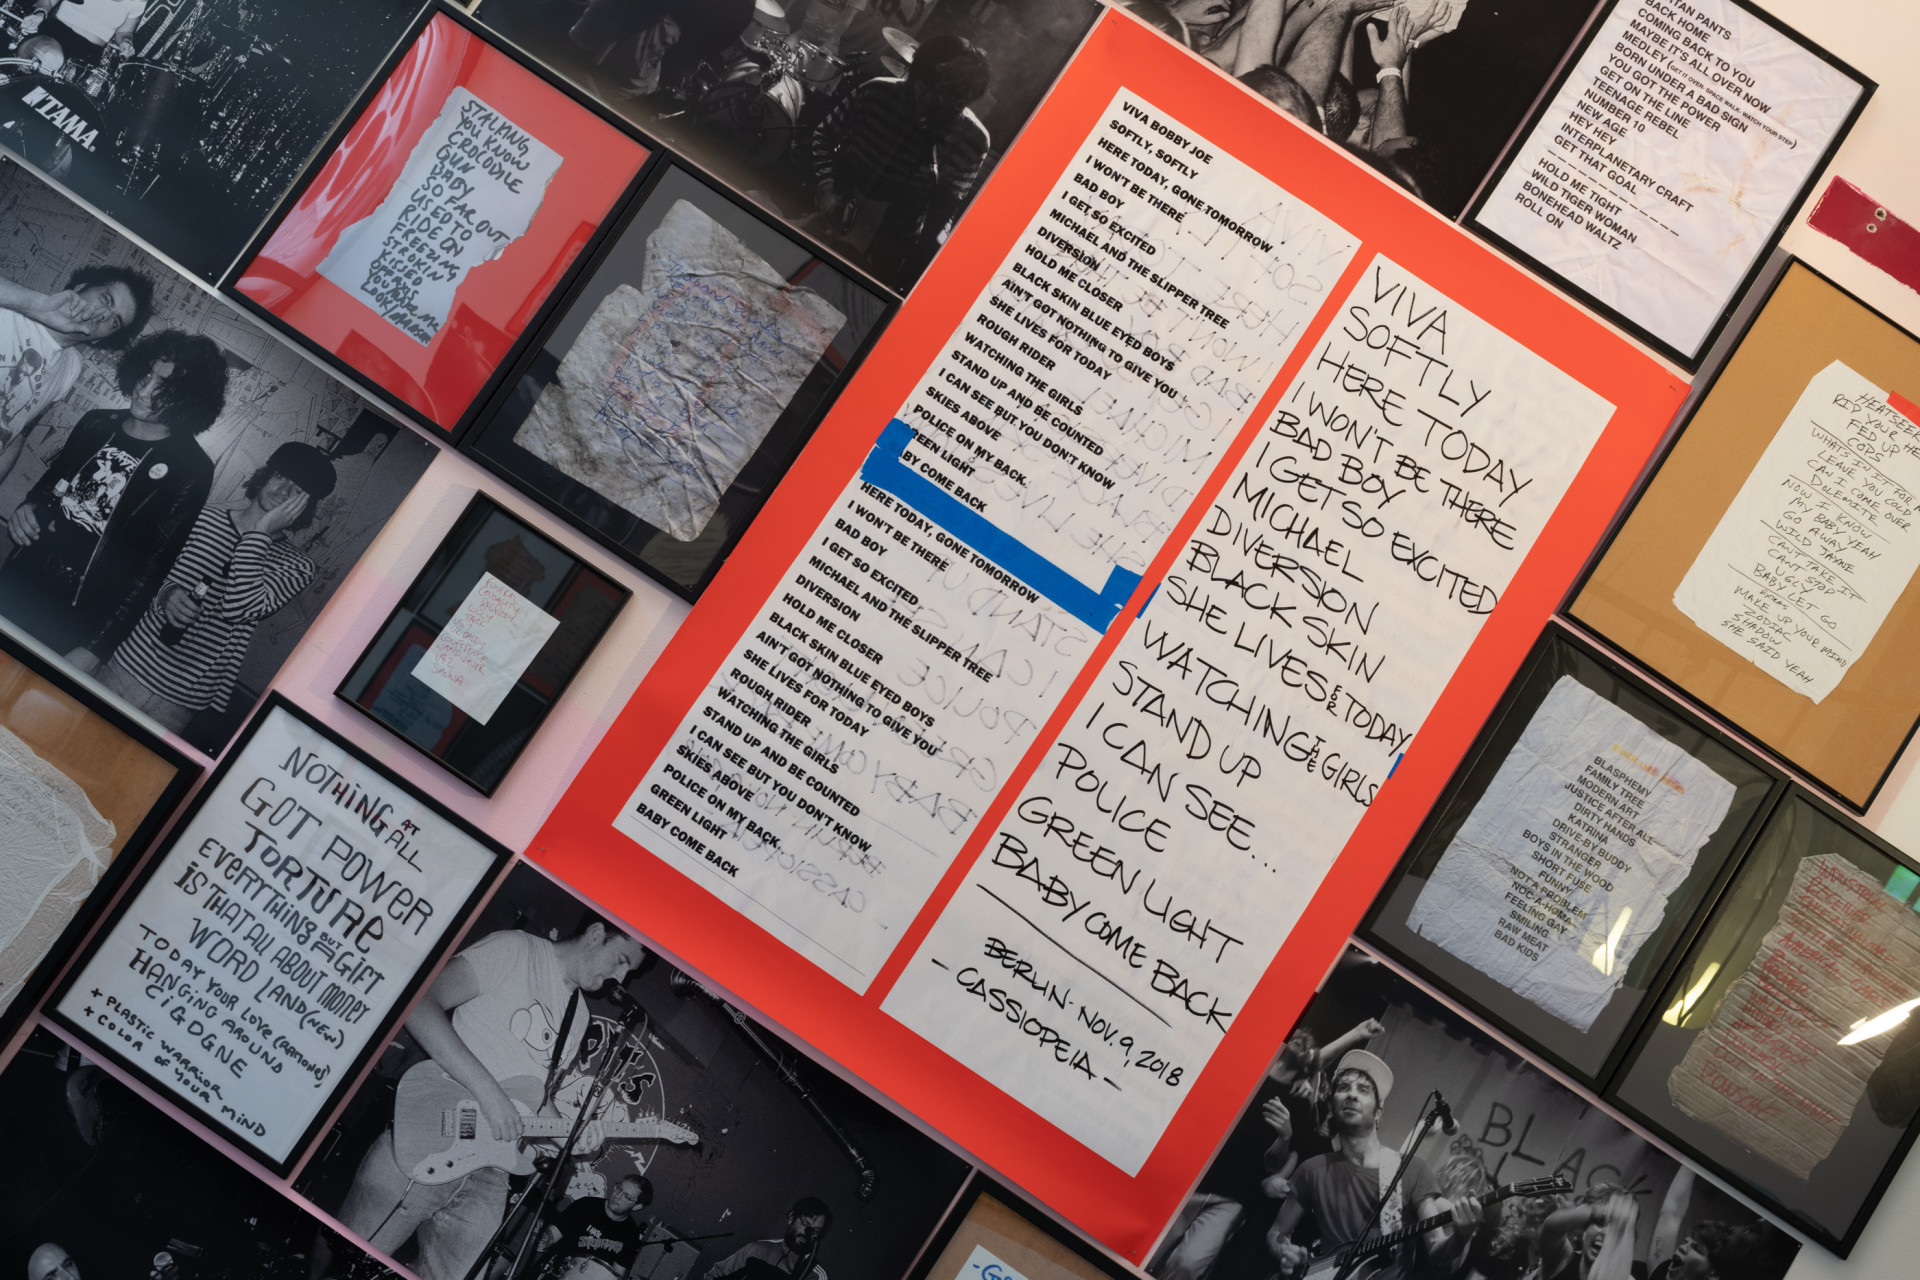 TAMA
STALKING
YOU KNOW
CROCODILE
GUN
BABY
SO FAR OUT
USED TO
RIDE ON
FREEZING
STROKIN
KISSED
NOTHING AT ALL
GOT POWER
TORTURE
EVERYTHING BUT GIFT
IS THAT ALL ABOUT MONEY
WORD LAND (NEW)
TODAY YOUR LOVE (RAMONES)
HANGING AROUND
CiGDGNE
+ PLASTIC WARRIOR
+ COLOR OF YOUR MIND
VIVA BOBBY JOE
SOFTLY, SOFTLY
HERE TODAY, GONE TOMORROW
I WON'T BE THERE
BAD BOY
I GET SO EXCITED
MICHAEL AND THE SLIPPER TREE
DIVERSION
HOLD ME CLOSER
BLACK SKIN BLUE EYED BOYS
AIN'T GOT NOTHING TO GIVE YOU
SHE LIVES FOR TODAY
ROUGH RIDER
WATCHING THE GIRLS
STAND UP AND BE COUNTED
I CAN SEE BUT YOU DON'T KNOW
SKIES ABOVE
POLICE ON MY BACK,
REEN LIGHT
BY COME BACK
HERE TODAY, GONE TOMORROW
I WON'T BE THERE
BAD BOY
I GET SO EXCITED
MICHAEL AND THE SLIPPER TREE
DIVERSION
HOLD ME CLOSER
BLACK SKIN BLUE EYED BOYS
AIN'T GOT NOTHING TO GIVE YOU
SHE LIVES FOR TODAY
ROUGH RIDER
WATCHING THE GIRLS
STAND UP AND BE COUNTED
I CAN SEE BUT YOU DON'T KNOW
SKIES ABOVE
POLICE ON MY BACK,
GREEN LIGHT
BABY COME BACK
VIVA
SOFTLY
HERE TODAY
I WON'T BE THERE
BAD BOY
I GET SO EXCITED
MICHAEL
DIVERSION
BLACK SKIN
SHE LIVES FOR TODAY
WATCHING THE GIRLS
STAND UP
I CAN SEE...
POLICE
GREEN LIGHT
BABY COME BACK
BERLIN - NOV. 9, 2018
- CASSIOPEIA -
TAN PANTS
BACK HOME
COMING BACK TO YOU
MAYBE IT'S ALL OVER NOW
MEDLEY (GET IT OVER- SPACE WALK- WATCH YOUR STEP)
BORN UNDER A BAD SIGN
YOU GOT THE POWER
GET ON THE LINE
TEENAGE REBEL
NUMBER 10
NEW AGE
HEY HEY
INTERPLANETARY CRAFT
GET THAT GOAL
HOLD ME TIGHT
WILD TIGER WOMAN
BONEHEAD WALTZ
ROLL ON
HEATSEEK
RIP YOUR HE
FED UP
COPS
WHAT'S IN IT FOR
LEAVE YOU COLD
CAN I COME OVER
DOLEMITE
NOW I KNOW
MY BABY YEAH
GO AWAY
WILD JAYNE
CAN'T TAKE IT
CANT STOP
UGLY
BABY LET GO
MAKE UP YOUR MIND
ZODIAC
SHADOW
SHE SAID YEAH
BLASPHEMY
FAMILY TREE
MODERN ART
JUSTICE AFTER ALL
DIRTY HANDS
KATRINA
DRIVE-BY BUDDY
STRANGER
BOYS IN THE WOOD
SHORT FUSE
FUNNY
NOT A PROBLEM
NOC-A-HOMA
FEELING GAY
SMILING
RAW MEAT
BAD KIDS
BLACK